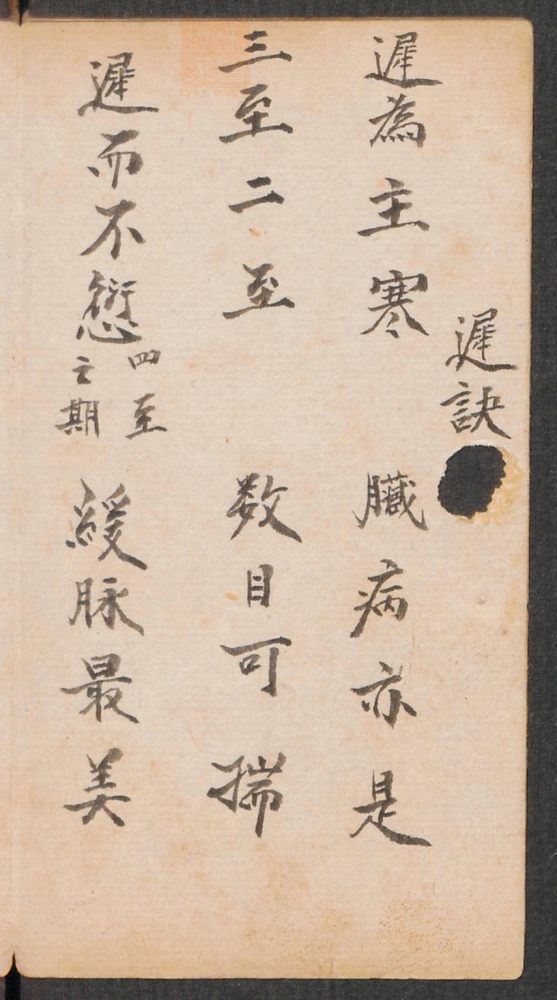 遲訣
遲為主寒 臟病亦是
三至二至 数目可揣
遲而不愆 四至之期 緩脉最美